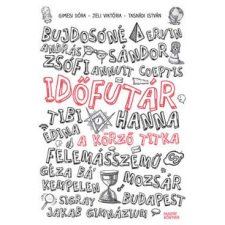 GIMESI DÓRA • JELI VIKTÓRIA • TASNÁDI ISTVÁN
BUJDOSÓNÉ ERVIN
ANDRÁS SÁNDOR
ZSÓFI ANNUIT COEPTIS
IDŐFUTÁR
TIBI HANNA
EDINA A KÖRZŐ TITKA
FELEMÁSSZEMŰ
GÉZA BÁ'
KEMPELEN MOZSÁR
SIGRAY BUDAPEST
JAKAB GIMNÁZIUM